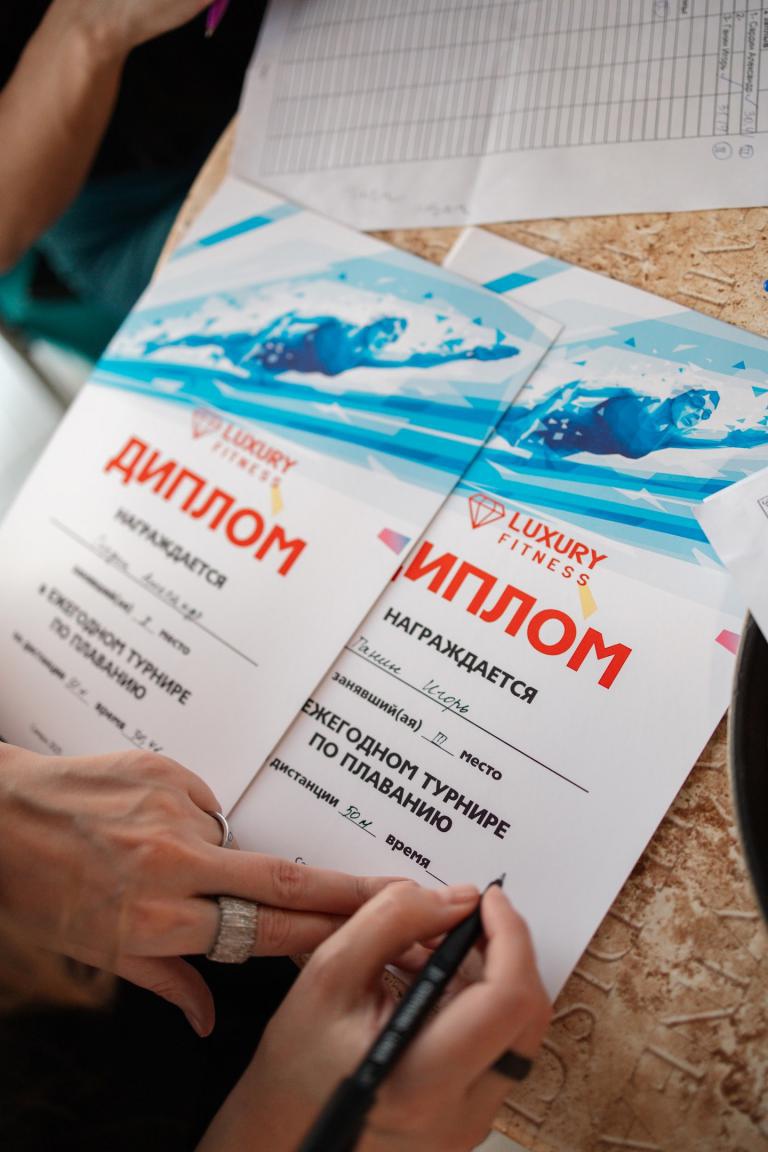 LUXURY
FITNESS
ДИПЛОМ
НАГРАЖДАЕТСЯ
занявший(ая) место
в ЕЖЕГОДНОМ ТУРНИРЕ
ПО ПЛАВАНИЮ
на дистанции время
LUXURY
FITNESS
ИПЛОМ
НАГРАЖДАЕТСЯ
Панин Игорь
занявший(ая) III место
ЕЖЕГОДНОМ ТУРНИРЕ
ПО ПЛАВАНИЮ
дистанции 50 м время